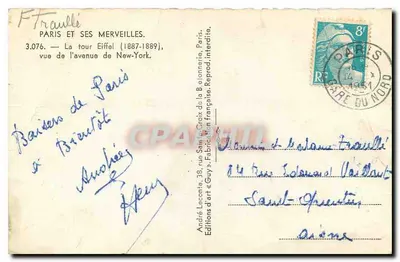 F Fraullé
PARIS ET SES MERVEILLES.
3.076. — La tour Eiffel (1887-1889),
vue de l'avenue de New-York.
Baisers de Paris
à Bientôt
Andrée
André Leconte, 38, rue Ste Croix de la Bretonnerie, Paris.
Editions d'art "Guy". Fabrication française. Reprod. interdite.
8F
RF
PARIS
1951
GARE DU NORD
CPARAMA.COM
Monsieur et Madame Fraullé
84 Rue Edouard Vaillant
Saint-Quentin
Aisne